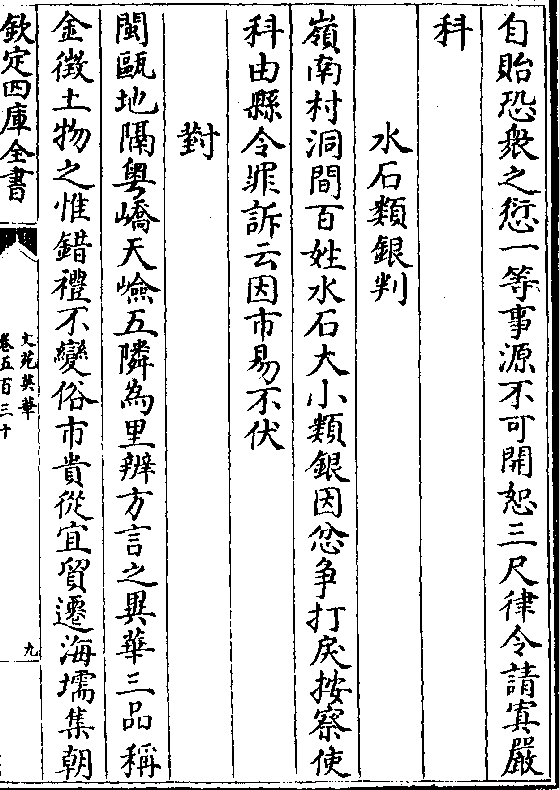 自貽恐衆之愆一等事源不可開恕三尺律令請寘嚴
科
水石類銀判
嶺南村洞間百姓水石大小類銀因忿争打戾按察使
科由縣令罪訴云因市易不伏
對
閩甌地隔粤嶠天嶮五隣為里辨方言之異華三品稱
金徴土物之惟錯禮不變俗市貴從宜貿遷海壖集朝
欽定四庫全書
文苑英華
卷五百三十
九